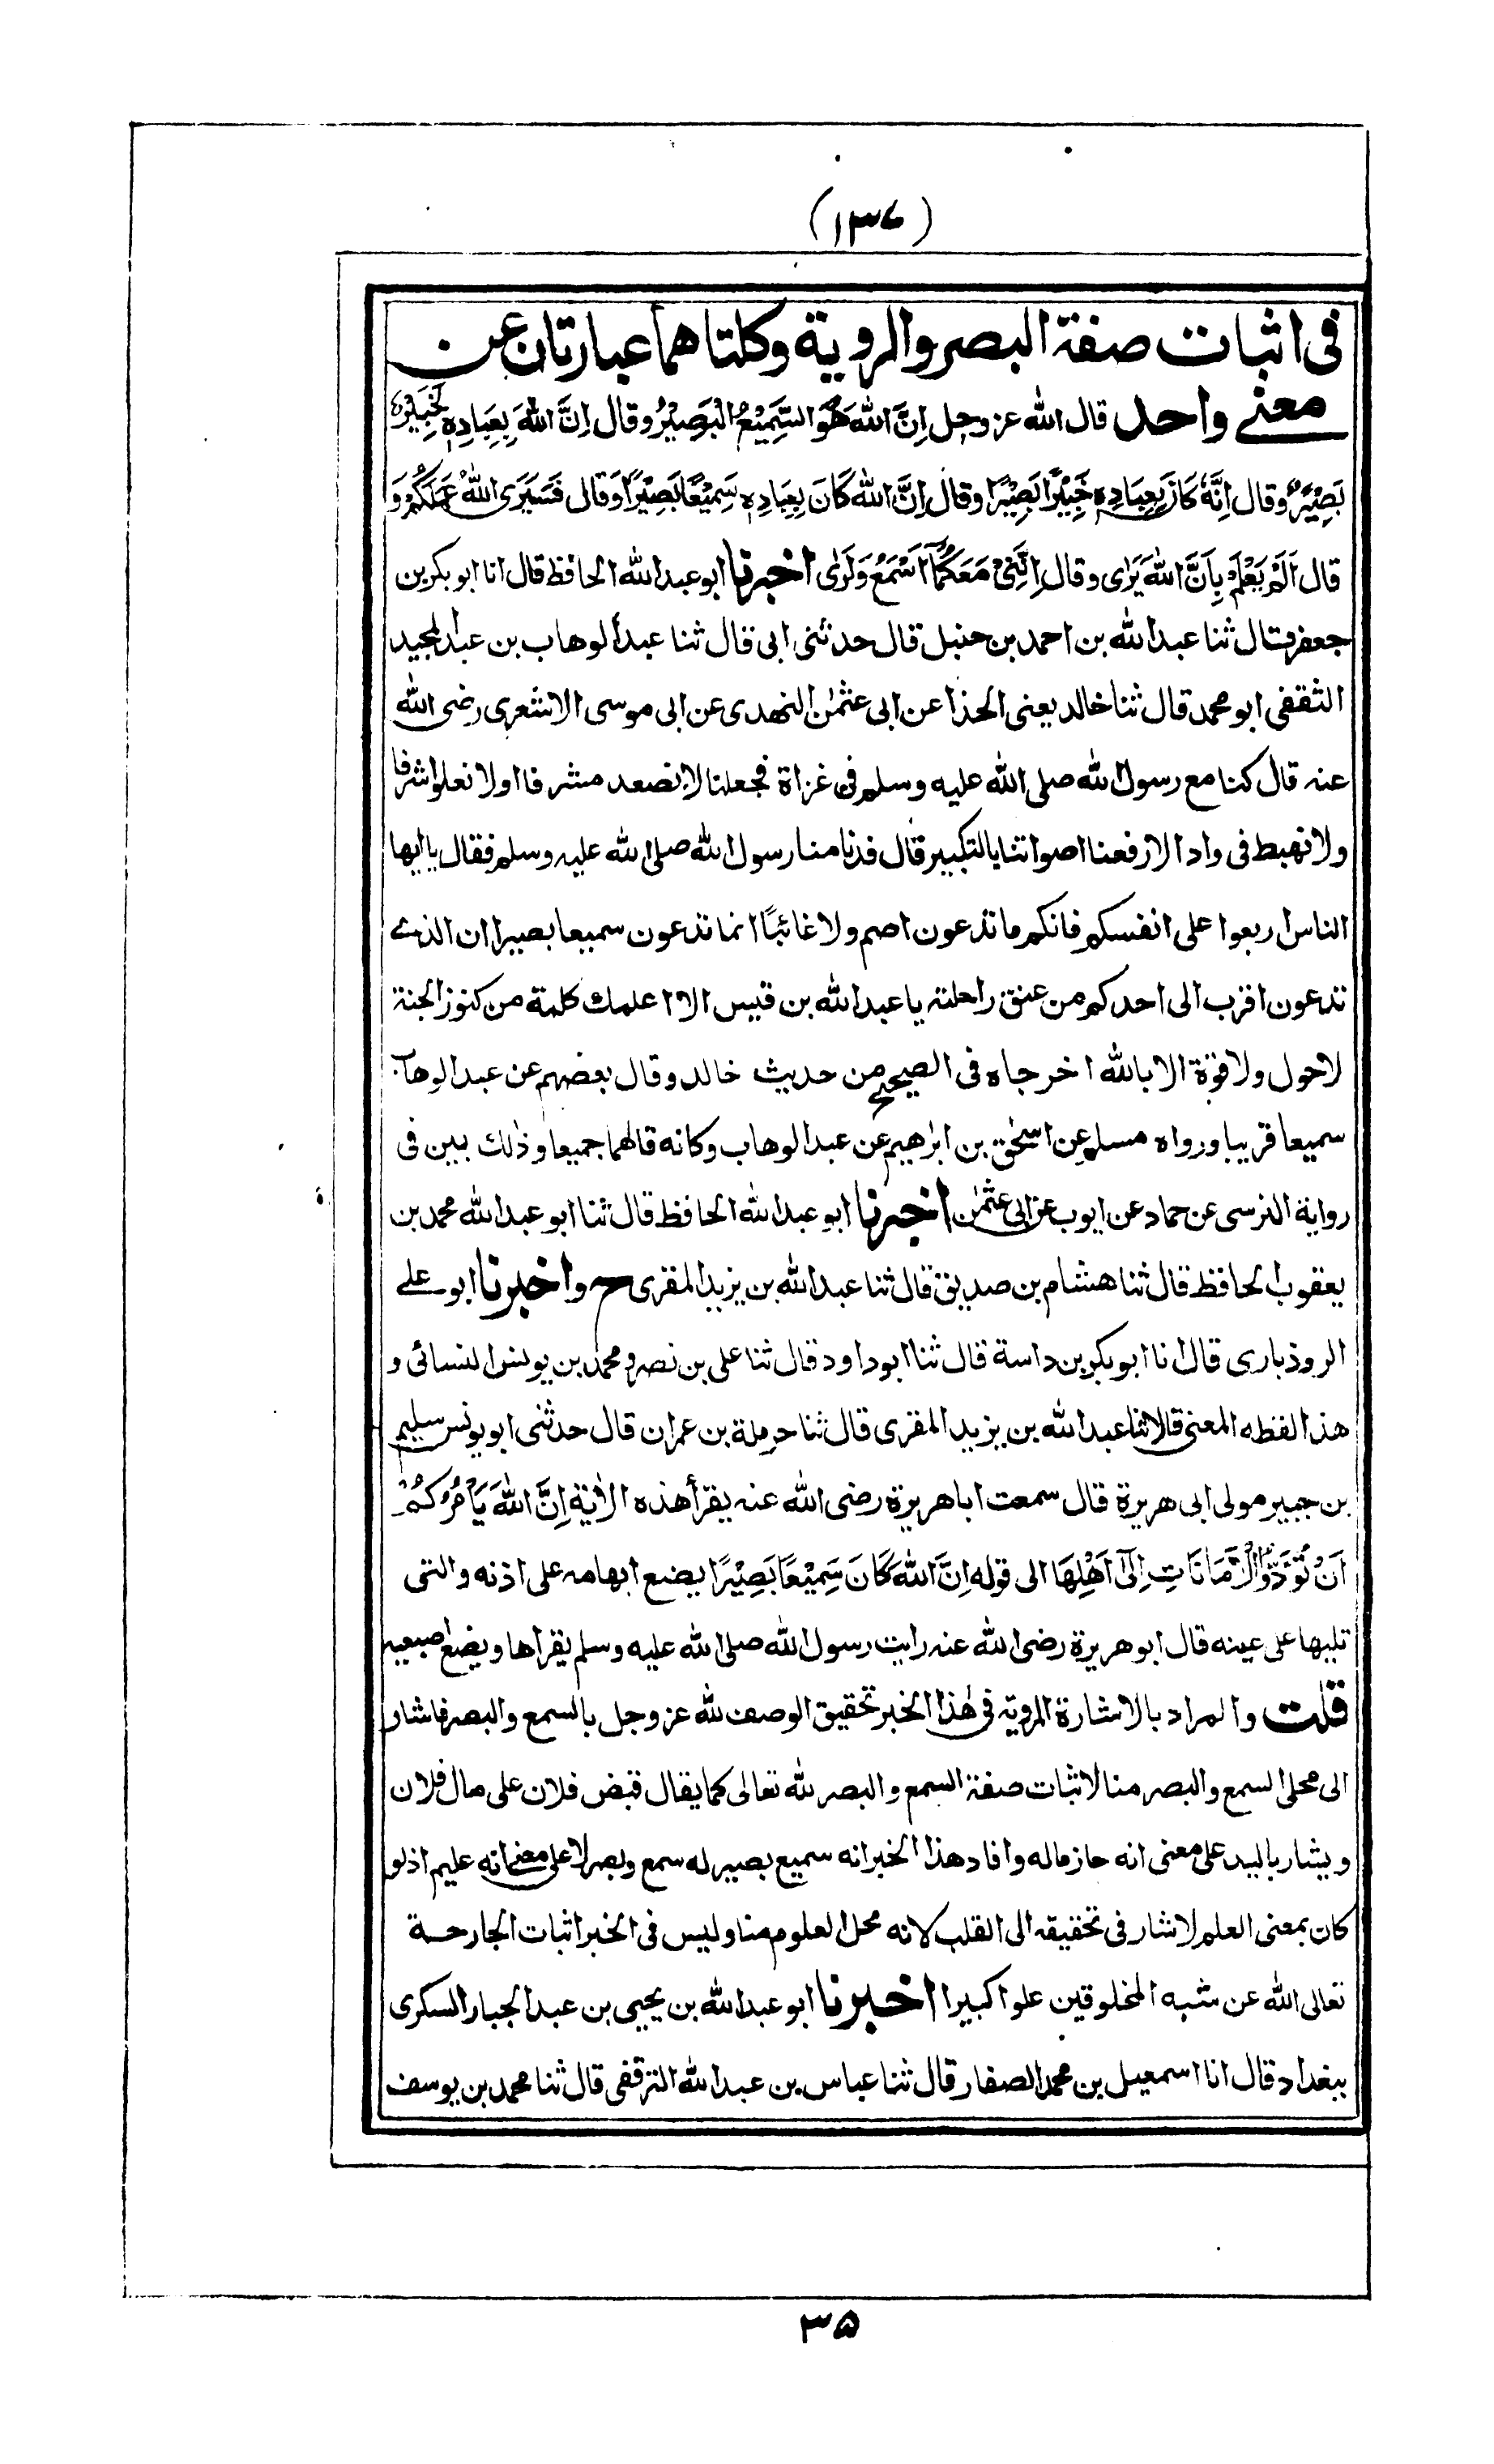 (١٣٧)
فى اثبات صفة البصر والروية وكلتاهما عبارتان عن
معنے واحد قال الله عز وجل اِنَّ اللهَ هُوَ السَّمِيْعُ الْبَصِيْرُ وقال اِنَّ اللهَ بِعِبَادِهٖ لَخَبِيْرٌ
بَصِيْرٌ وقال اِنَّهٗ كَانَ بِعِبَادِهٖ خَبِيْرًا بَصِيْرًا وقال اِنَّ اللهَ كَانَ بِعِبَادِهٖ سَمِيْعًا بَصِيْرًا وَقال فَسَيَرَى اللهُ عَمَلَكُمْ وَ
قال اَلَمْ يَعْلَمْ بِاَنَّ اللهَ يَرٰى وقال اِنَّنِيْ مَعَكُمَآ اَسْمَعُ وَاَرٰى اخبرنا ابو عبد الله الحافظ قال انا ابو بكر بن
جعفر قال ثنا عبد الله بن احمد بن حنبل قال حدثنى ابى قال ثنا عبد الوهاب بن عبد المجيد
الثقفى ابو محمد قال ثنا خالد يعنى الحذا عن ابى عثمٰن النهدى عن ابى موسى الاشعرى رضى الله
عنه قال كنا مع رسول الله صلى الله عليه وسلم فى غزاة فجعلنا لا نصعد مشرفا اولا نعلوا شرفا
ولا نهبط فى واد الا رفعنا اصواتنا بالتكبير قال فدنا منا رسول الله صلى الله عليه وسلم فقال يا ايها
الناس اربعوا على انفسكم فانكم ما تدعون اصم ولا غائبًا انما تدعون سميعا بصيرا ان الذے
تدعون اقرب الى احدكم من عنق راحلته يا عبد الله بن قيس الا اعلمك كلمة من كنوز الجنة
لا حول ولا قوة الا بالله اخرجاه فى الصحيح من حديث خالد وقال بعضهم عن عبد الوهاب
سميعا قريبا ورواه مسلم عن اسحٰق بن ابرٰهيم عن عبد الوهاب وكانه قالهما جميعا وذٰلك بين فى
رواية النرسى عن حماد عن ايوب عن ابى عثمٰن اخبرنا ابو عبد الله الحافظ قال ثنا ابو عبد الله محمد بن
يعقوب الحافظ قال ثنا هشام بن صديق قال ثنا عبد الله بن يزيد المقرى ح واخبرنا ابو علے
الروذبارى قال انا ابو بكر بن داسة قال ثنا ابو داود قال ثنا على بن نصر ومحمد بن يونس النسائى و
هذا لفظه المعنى قالا ثنا عبد الله بن يزيد المقرى قال ثنا حرملة بن عمران قال حدثنى ابو يونس سليم
بن جبير مولى ابى هريرة قال سمعت ابا هريرة رضى الله عنه يقرأ هذه الاٰية اِنَّ اللهَ يَاْمُرُكُمْ
اَنْ تُؤَدُّوا الْاَمَانَاتِ اِلٰٓى اَهْلِهَا الى قوله اِنَّ اللهَ كَانَ سَمِيْعًا بَصِيْرًا يضع ابهامه على اذنه والتى
تليها على عينه قال ابو هريرة رضى الله عنه رايت رسول الله صلى الله عليه وسلم يقراها ويضع اصبعيه
قلت والمراد بالاشارة المروية فى هٰذا الخبر تحقيق الوصف لله عز وجل بالسمع والبصر فاشار
الى محلى السمع والبصر منا لاثبات صفة السمع والبصر لله تعالى كما يقال قبض فلان على مال فلان
ويشار باليد على معنى انه حاز ماله وافاد هذا الخبر انه سميع بصير له سمع وبصر لا على معنے انه عليم اذ لو
كان بمعنى العلم لاشار فى تحقيقه الى القلب لانه محل العلوم منا وليس فى الخبر اثبات الجارحة
تعالى الله عن شبه المخلوقين علوا كبيرا اخبرنا ابو عبد الله بن يحيى بن عبد الجبار السكرى
ببغداد قال انا اسمعيل بن محمد الصفار قال ثنا عباس بن عبد الله الترقفى قال ثنا محمد بن يوسف
٣٥